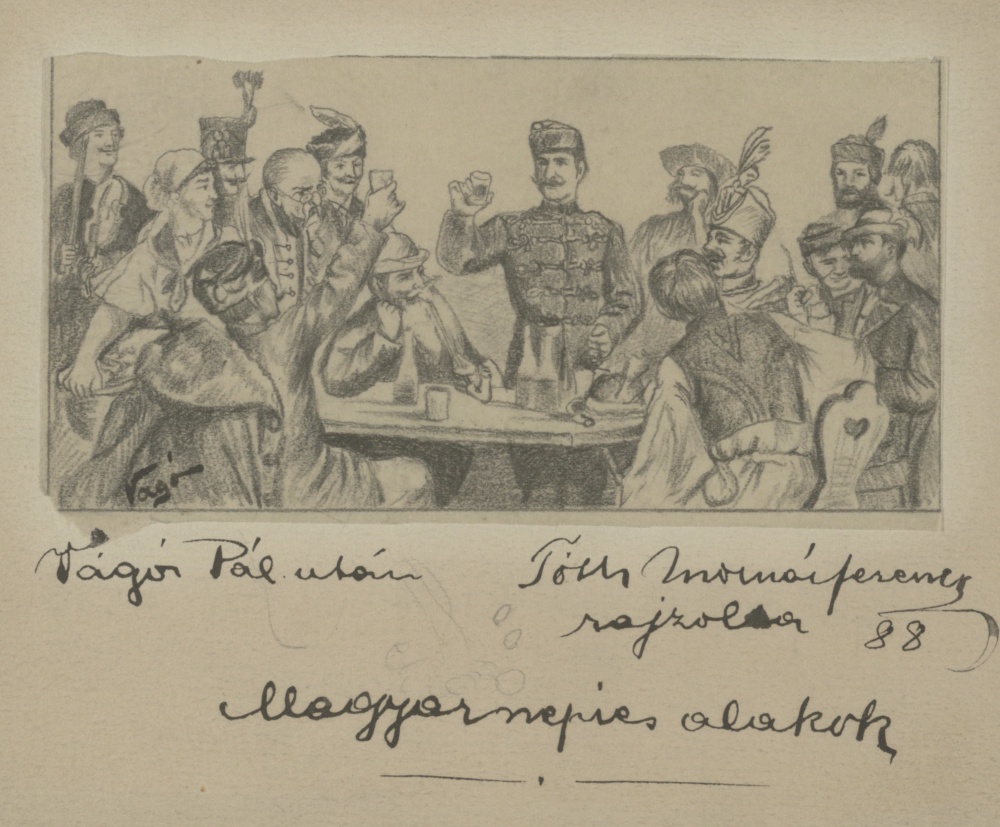 Vágó
Vágó Pál után
Tóth Molnár ferencz
rajzolta 88
Magyar népies alakok